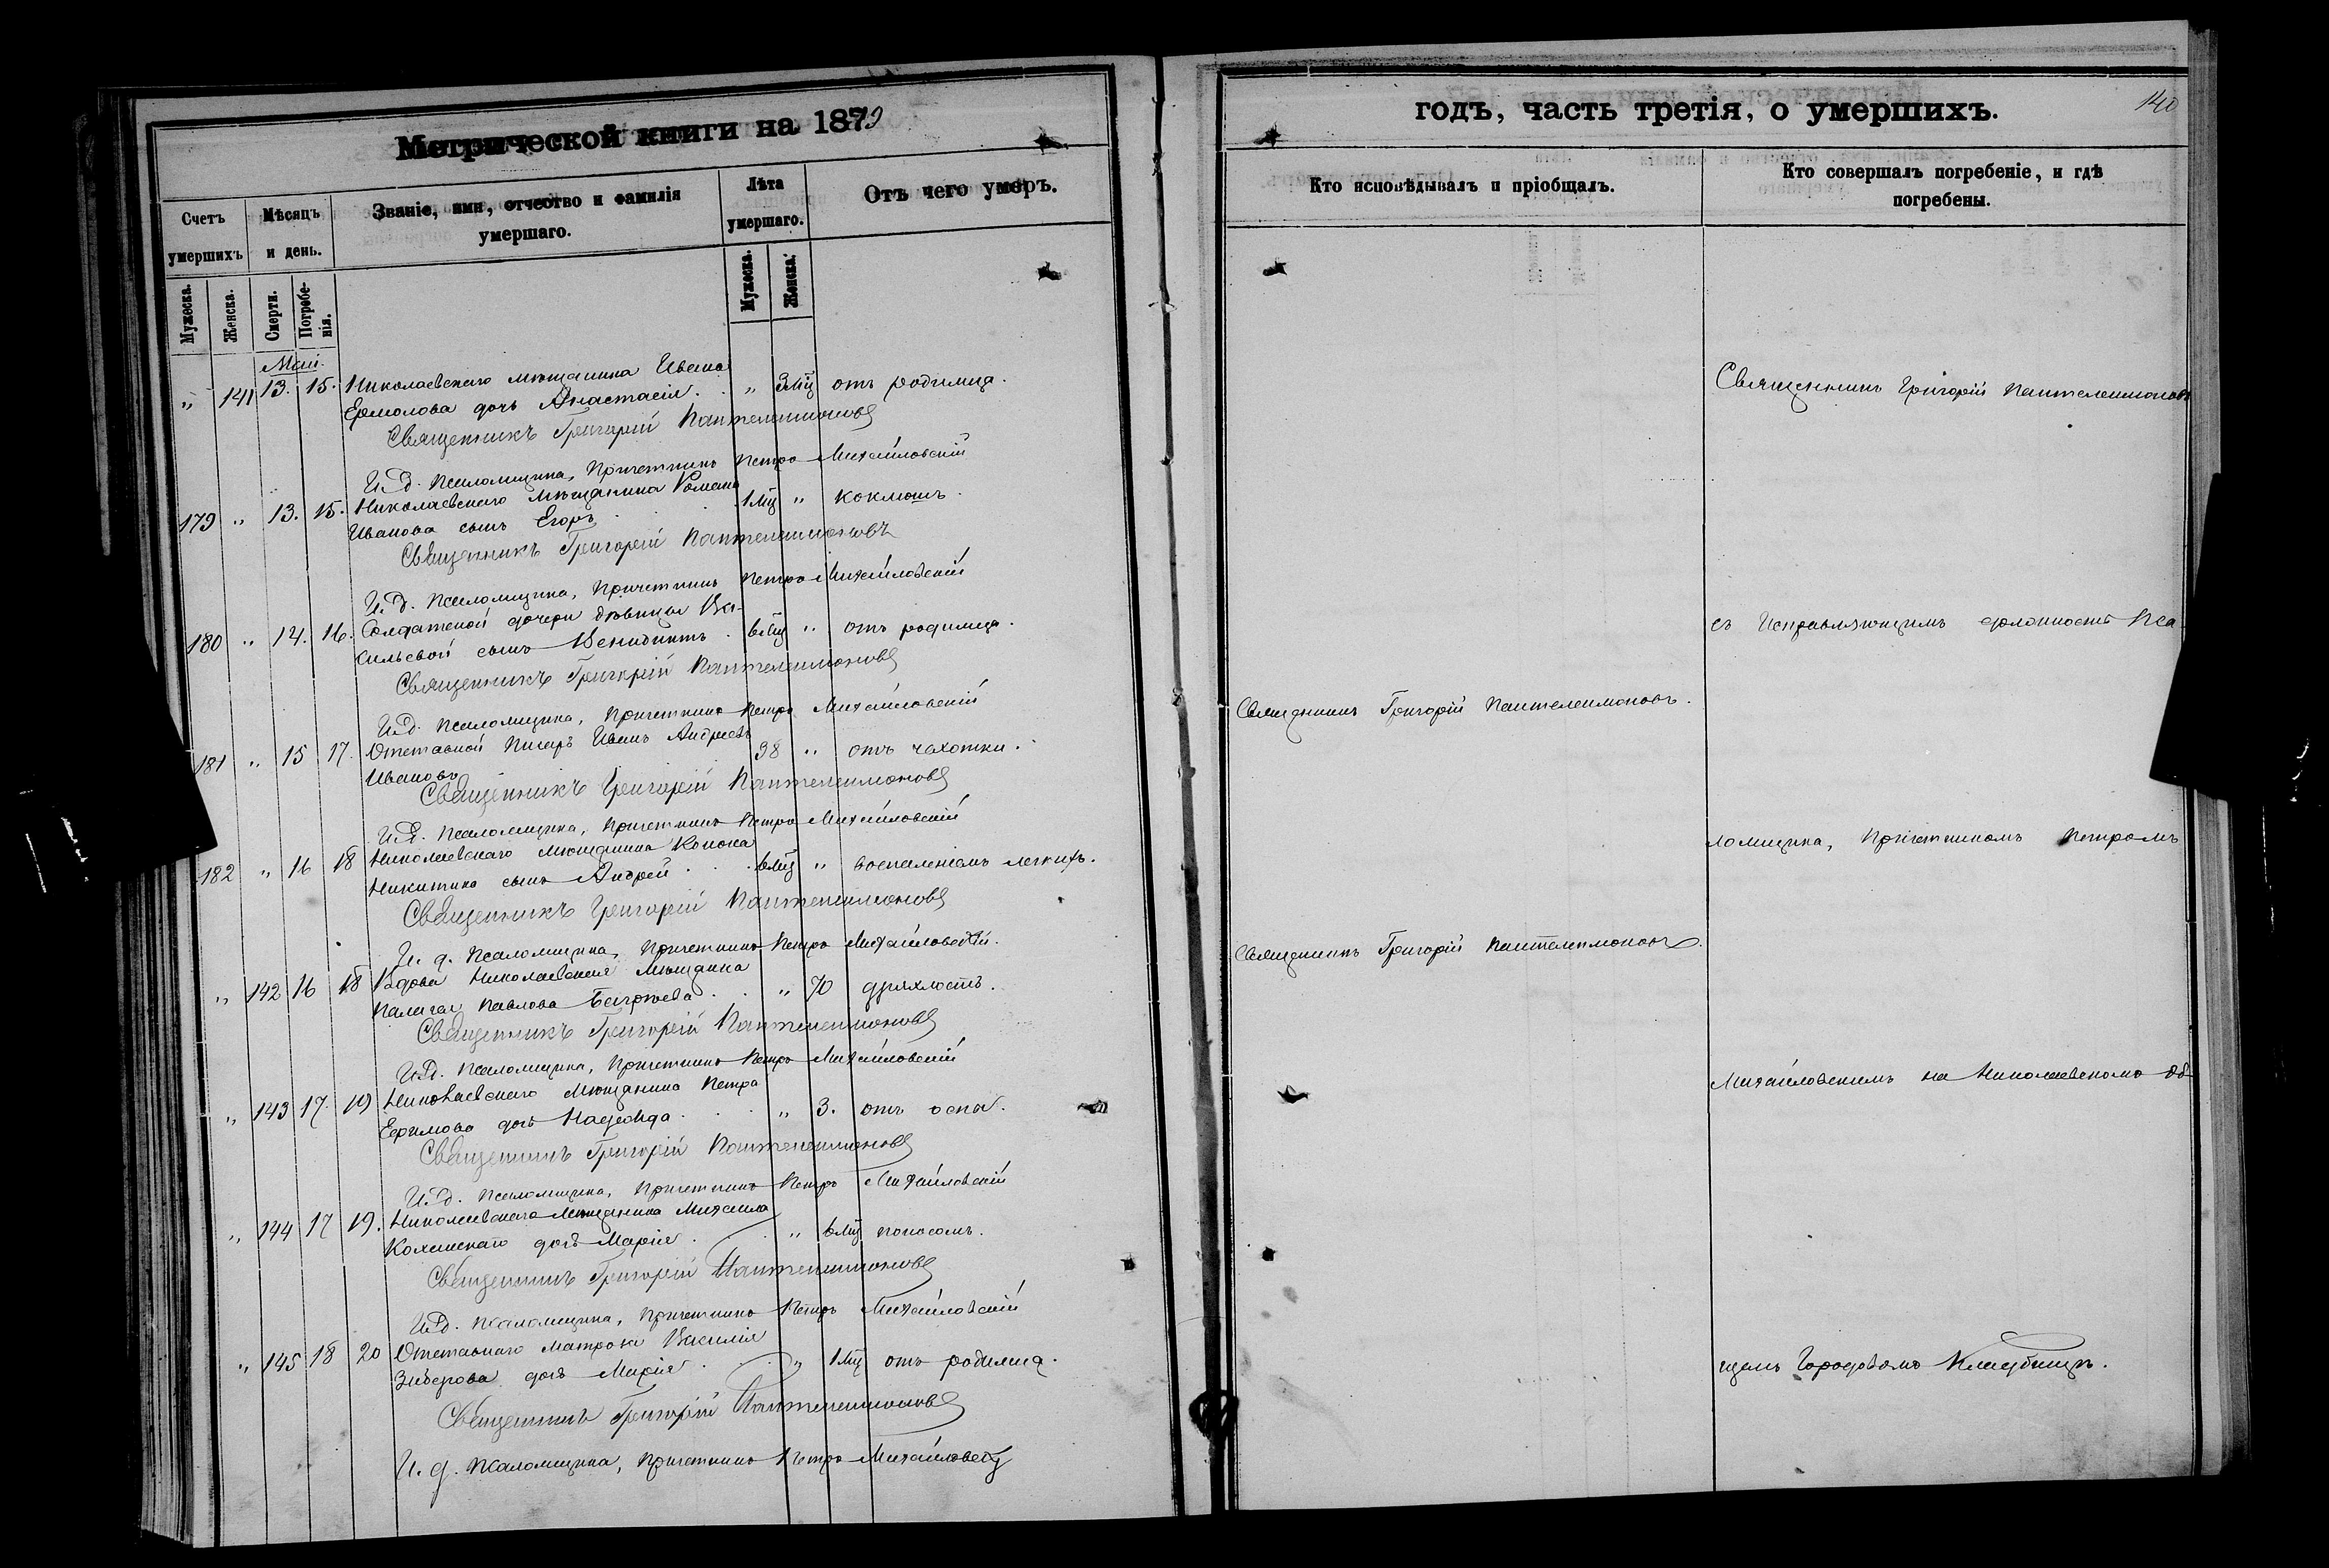 Метрической книги на 1879
Счетъ умершихъ
Мѣсяцъ и день.
Званіе, имя, отчество и фамилія умершаго.
Лѣта умершаго.
Отъ чего умеръ.
Мужеска.
Женска.
Смерти.
Погребенія.
Мужеска.
Женска.
Май.
" 141 13. 15. Николаевскаго мѣщанина Ивана " 3 мц отъ родимца.
Ермолова дочь Анастасія.
Священникъ Григорій Пантелеимоновъ
И. д. Псаломщика, Причетникъ Петръ Михайловскій
179 " 13. 15. Николаевскаго мѣщанина Романа 1 мц " коклюшъ.
Иванова сынъ Егоръ
Священникъ Григорій Пантелеимоновъ
И. д. Псаломщика, Причетникъ Петръ Михайловскій
180 " 14. 16. Солдатской дочери дѣвицы Ва- 6 мц " отъ родимца.
сильевой сынъ Венидиктъ.
Священникъ Григорій Пантелеимоновъ
И. д. Псаломщика, Причетникъ Петръ Михайловскій
181 " 15 17. Отставной Писарь Иванъ Андреевъ 38 " отъ чахотки.
Ивановъ
Священникъ Григорій Пантелеимоновъ
И. д. Псаломщика, Причетникъ Петръ Михайловскій
182 " 16 18 Николаевскаго мѣщанина Конона 6 мц " воспаленіемъ легкихъ.
Никитина сынъ Андрей
Священникъ Григорій Пантелеимоновъ
И. д. Псаломщика, Причетникъ Петръ Михайловскій.
" 142 16 18 Вдова Николаевская Мѣщанка " 70 дряхлость.
Павлова
Священникъ Григорій Пантелеимоновъ
И. д. Псаломщика, Причетникъ Петръ Михайловскій
" 143 17. 19 Николаевскаго Мѣщанина Петра " 3. отъ оспы.
Ефимова дочь Надежда
Священникъ Григорій Пантелеимоновъ
И. д. Псаломщика, Причетникъ Петръ Михайловскій
" 144 17 19. Николаевскаго Мѣщанина Михаила " 6 мц поносомъ.
дочь Марія
Священникъ Григорій Пантелеимоновъ
И. д. Псаломщика, Причетникъ Петръ Михайловскій
" 145 18 20 Отставнаго Матроса Василія " 1 мц отъ родимца.
дочь Марія
Священникъ Григорій Пантелеимоновъ
И. д. Псаломщика, Причетникъ Петръ Михайловскій
годъ, часть третія, о умершихъ.
140
Кто исповѣдывалъ и пріобщалъ.
Кто совершалъ погребеніе, и гдѣ погребены.
Священникъ Григорій Пантелеимоновъ
съ Исправляющимъ должность Пса
Священникъ Григорій Пантелеимоновъ.
ломщика, Причетникомъ Петромъ
Священникъ Григорій Пантелеимоновъ.
Михайловскимъ на Николаевскомъ Об-
щемъ Городовомъ Кладбищѣ.